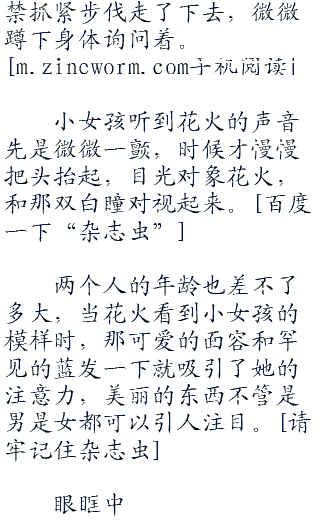 禁抓紧步伐走了下去，微微
蹲下身体询问着。
[m.zincworm.com手机阅读i
小女孩听到花火的声音
先是微微一颤，时候才慢慢
把头抬起，目光对象花火，
和那双白瞳对视起来。[百度
一下“杂志虫”]
两个人的年龄也差不了
多大，当花火看到小女孩的
模样时，那可爱的面容和罕
见的蓝发一下就吸引了她的
注意力，美丽的东西不管是
男是女都可以引人注目。[请
牢记住杂志虫]
眼眶中